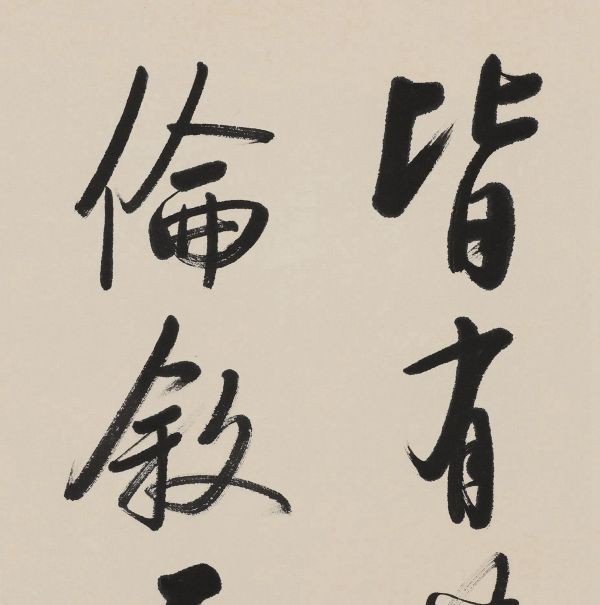 皆有
倫敘